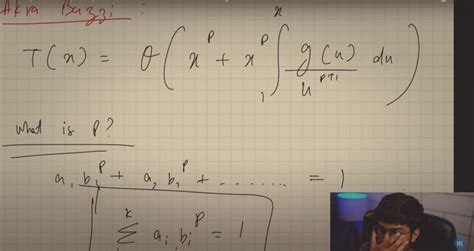 Akra Bazzi :
T(x) = θ( x^p + x^p ∫₁^x g(u)/u^(p+1) du )
what is P?
a₁ b₁^p + a₂ b₂^p + ........ = 1
∑^k aᵢ bᵢ^p = 1
NK